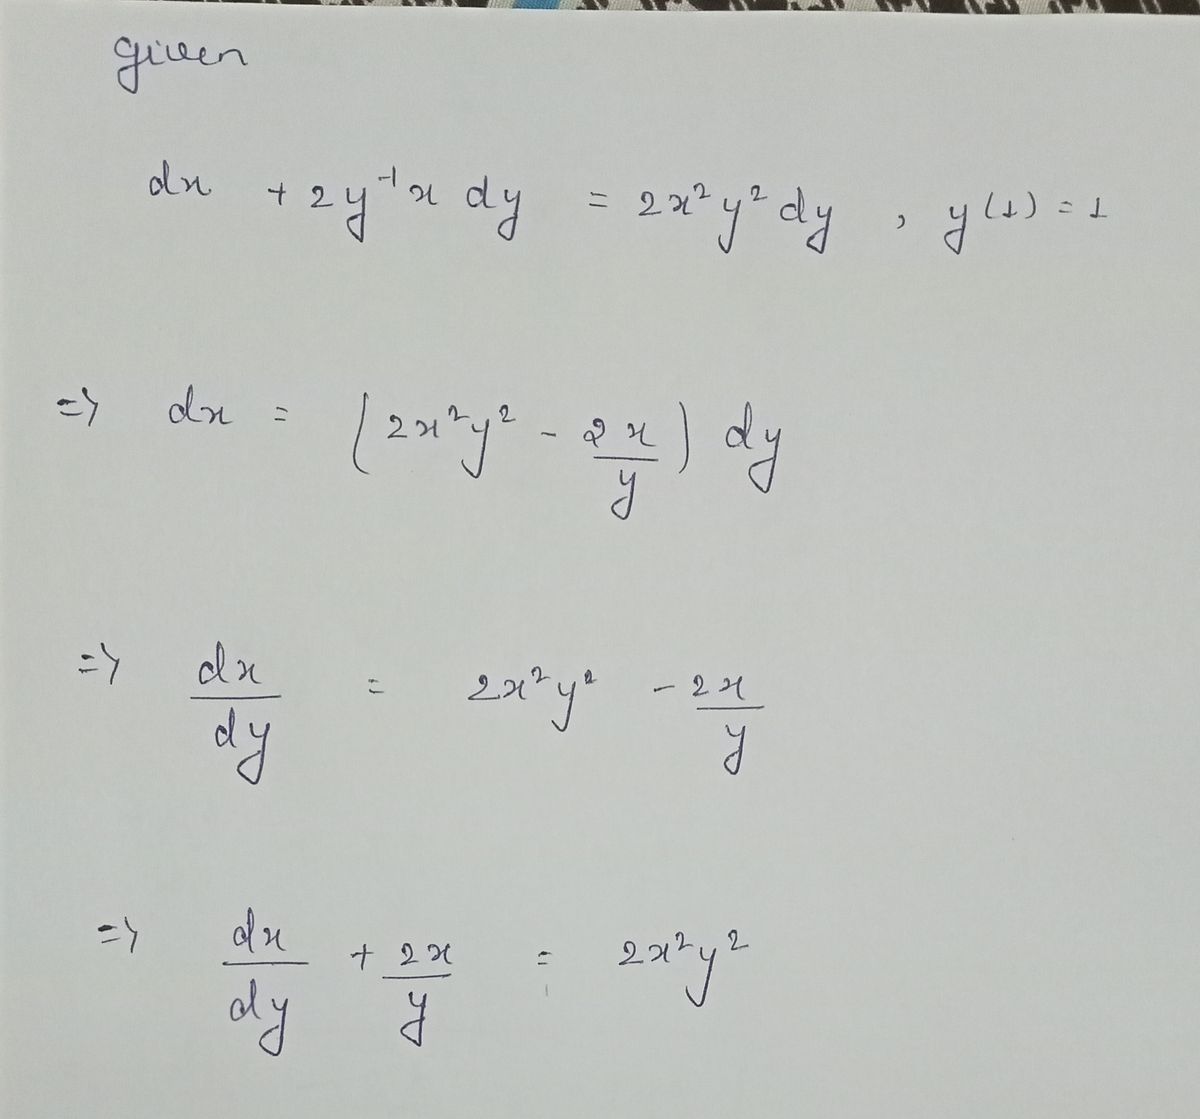 given
dx + 2y⁻¹x dy = 2x²y² dy , y(1) = 1
=> dx = (2x²y² - 2x/y) dy
=> dx/dy = 2x²y² - 2x/y
=> dx/dy + 2x/y = 2x²y²